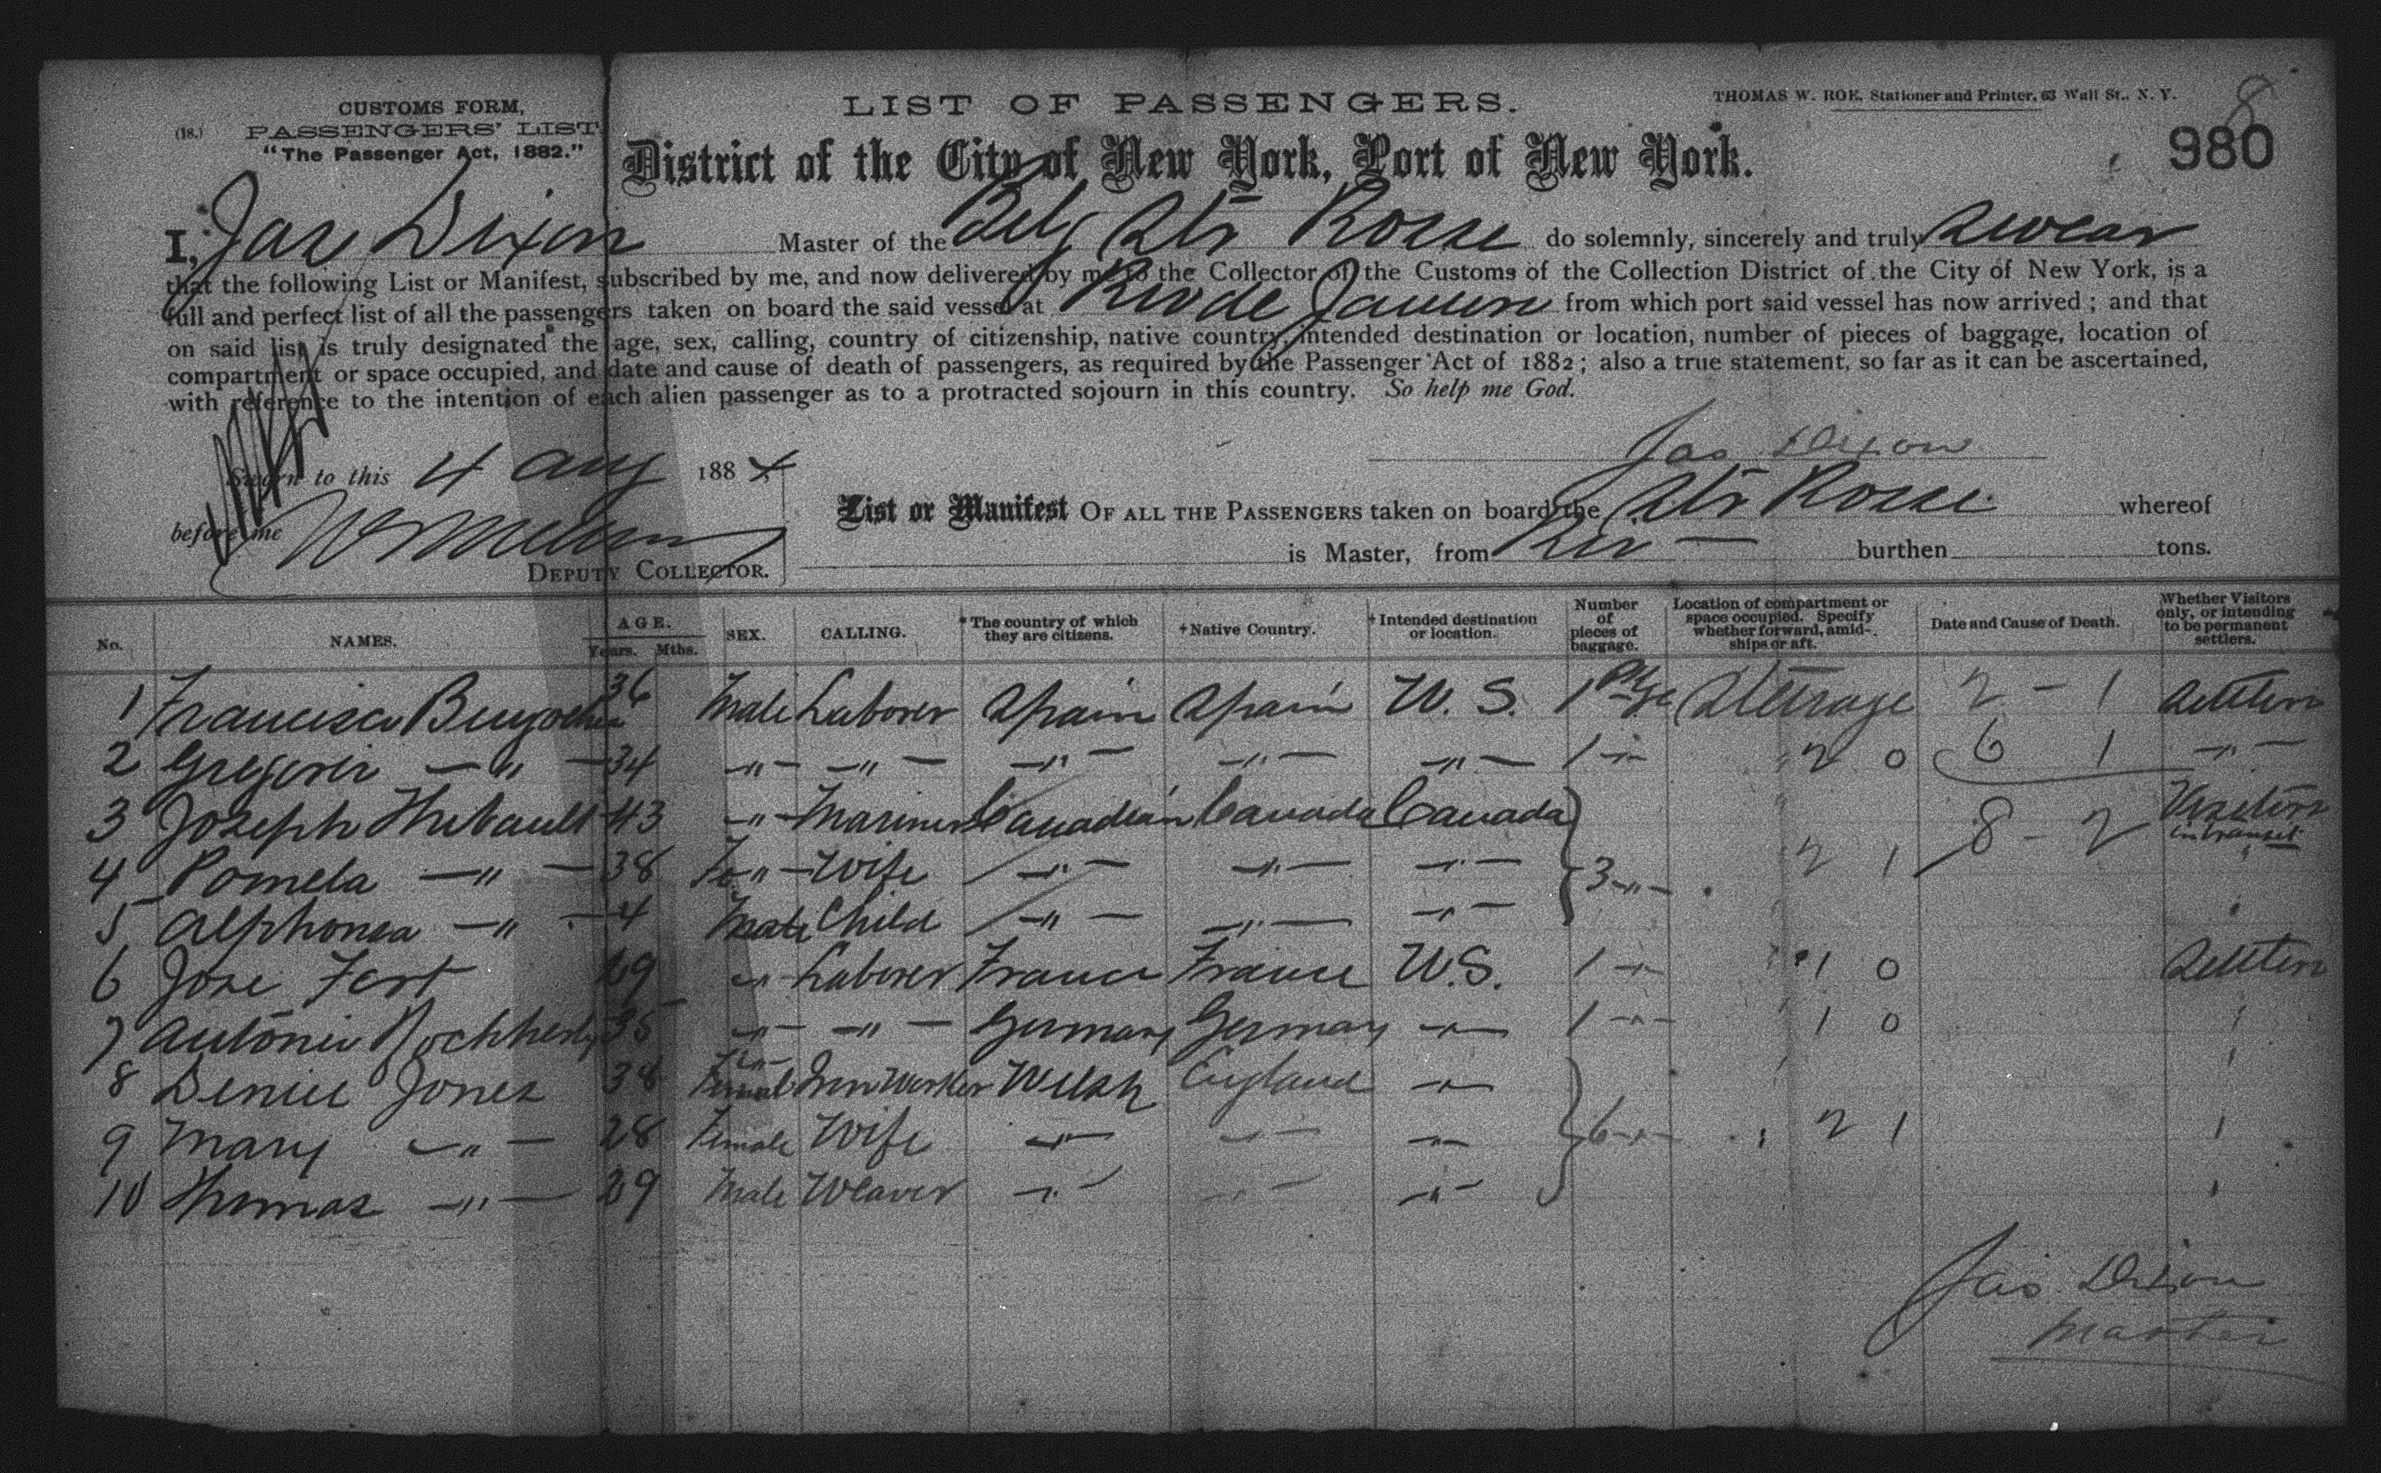 CUSTOMS FORM,
(18.) PASSENGERS' LIST.
"The Passenger Act, 1882."
LIST OF PASSENGERS.
THOMAS W. ROE, Stationer and Printer, 63 Wall St., N. Y.
8
980
District of the City of New York, Port of New York.
I, Jas Dixon Master of the Belg Str Rosse do solemnly, sincerely and truly swear
that the following List or Manifest, subscribed by me, and now delivered by me to the Collector of the Customs of the Collection District of the City of New York, is a
full and perfect list of all the passengers taken on board the said vessel at Rio de from which port said vessel has now arrived; and that
on said list is truly designated the age, sex, calling, country of citizenship, native country, intended destination or location, number of pieces of baggage, location of
compartment or space occupied, and date and cause of death of passengers, as required by the Passenger Act of 1882; also a true statement, so far as it can be ascertained,
with reference to the intention of each alien passenger as to a protracted sojourn in this country. So help me God.
Jas Dixon
Sworn to this 4 Aug 1884
before me
DEPUTY COLLECTOR.
List or Manifest OF ALL THE PASSENGERS taken on board the Str Rosse whereof
is Master, from Rio — burthen tons.
No. NAMES. AGE. Years. Mths. SEX. CALLING. *The country of which they are citizens. +Native Country. +Intended destination or location. Number of pieces of baggage. Location of compartment or space occupied. Specify whether forward, amid-ships or aft. Date and Cause of Death. Whether Visitors only, or intending to be permanent settlers.
1 Francisco 36 Male Laborer Spain Spain U. S. 1 Pkge Steerage 2 - 1 Settlers
2 Gregorio — " — 34 — " — — " — — " — — " — — " — 1 — " — 2 0 6 1 — " —
3 Joseph Thibault 43 — " — Mariner Canadian Canada Canada 8 - 2 Visitors in transit
4 Pamela — " — 38 Fe " — Wife — " — — " — — " — 3 — " — 2 1
5 Alphonsa — " — 4 Male Child — " — — " — — " —
6 Jose Fort 29 — " — Laborer France France U.S. 1 — " — 1 0 Settlers
7 Antonio 35 — " — — " — Germany Germany — " — 1 — " — 1 0
8 Jones 38 Female Iron Worker Welsh England — " —
9 Mary — " — 28 Female Wife — " — — " — — " — 6 — " — 2 1
10 Thomas — " — 29 Male Weaver — " — — " — — " —
Jas Dixon
Master